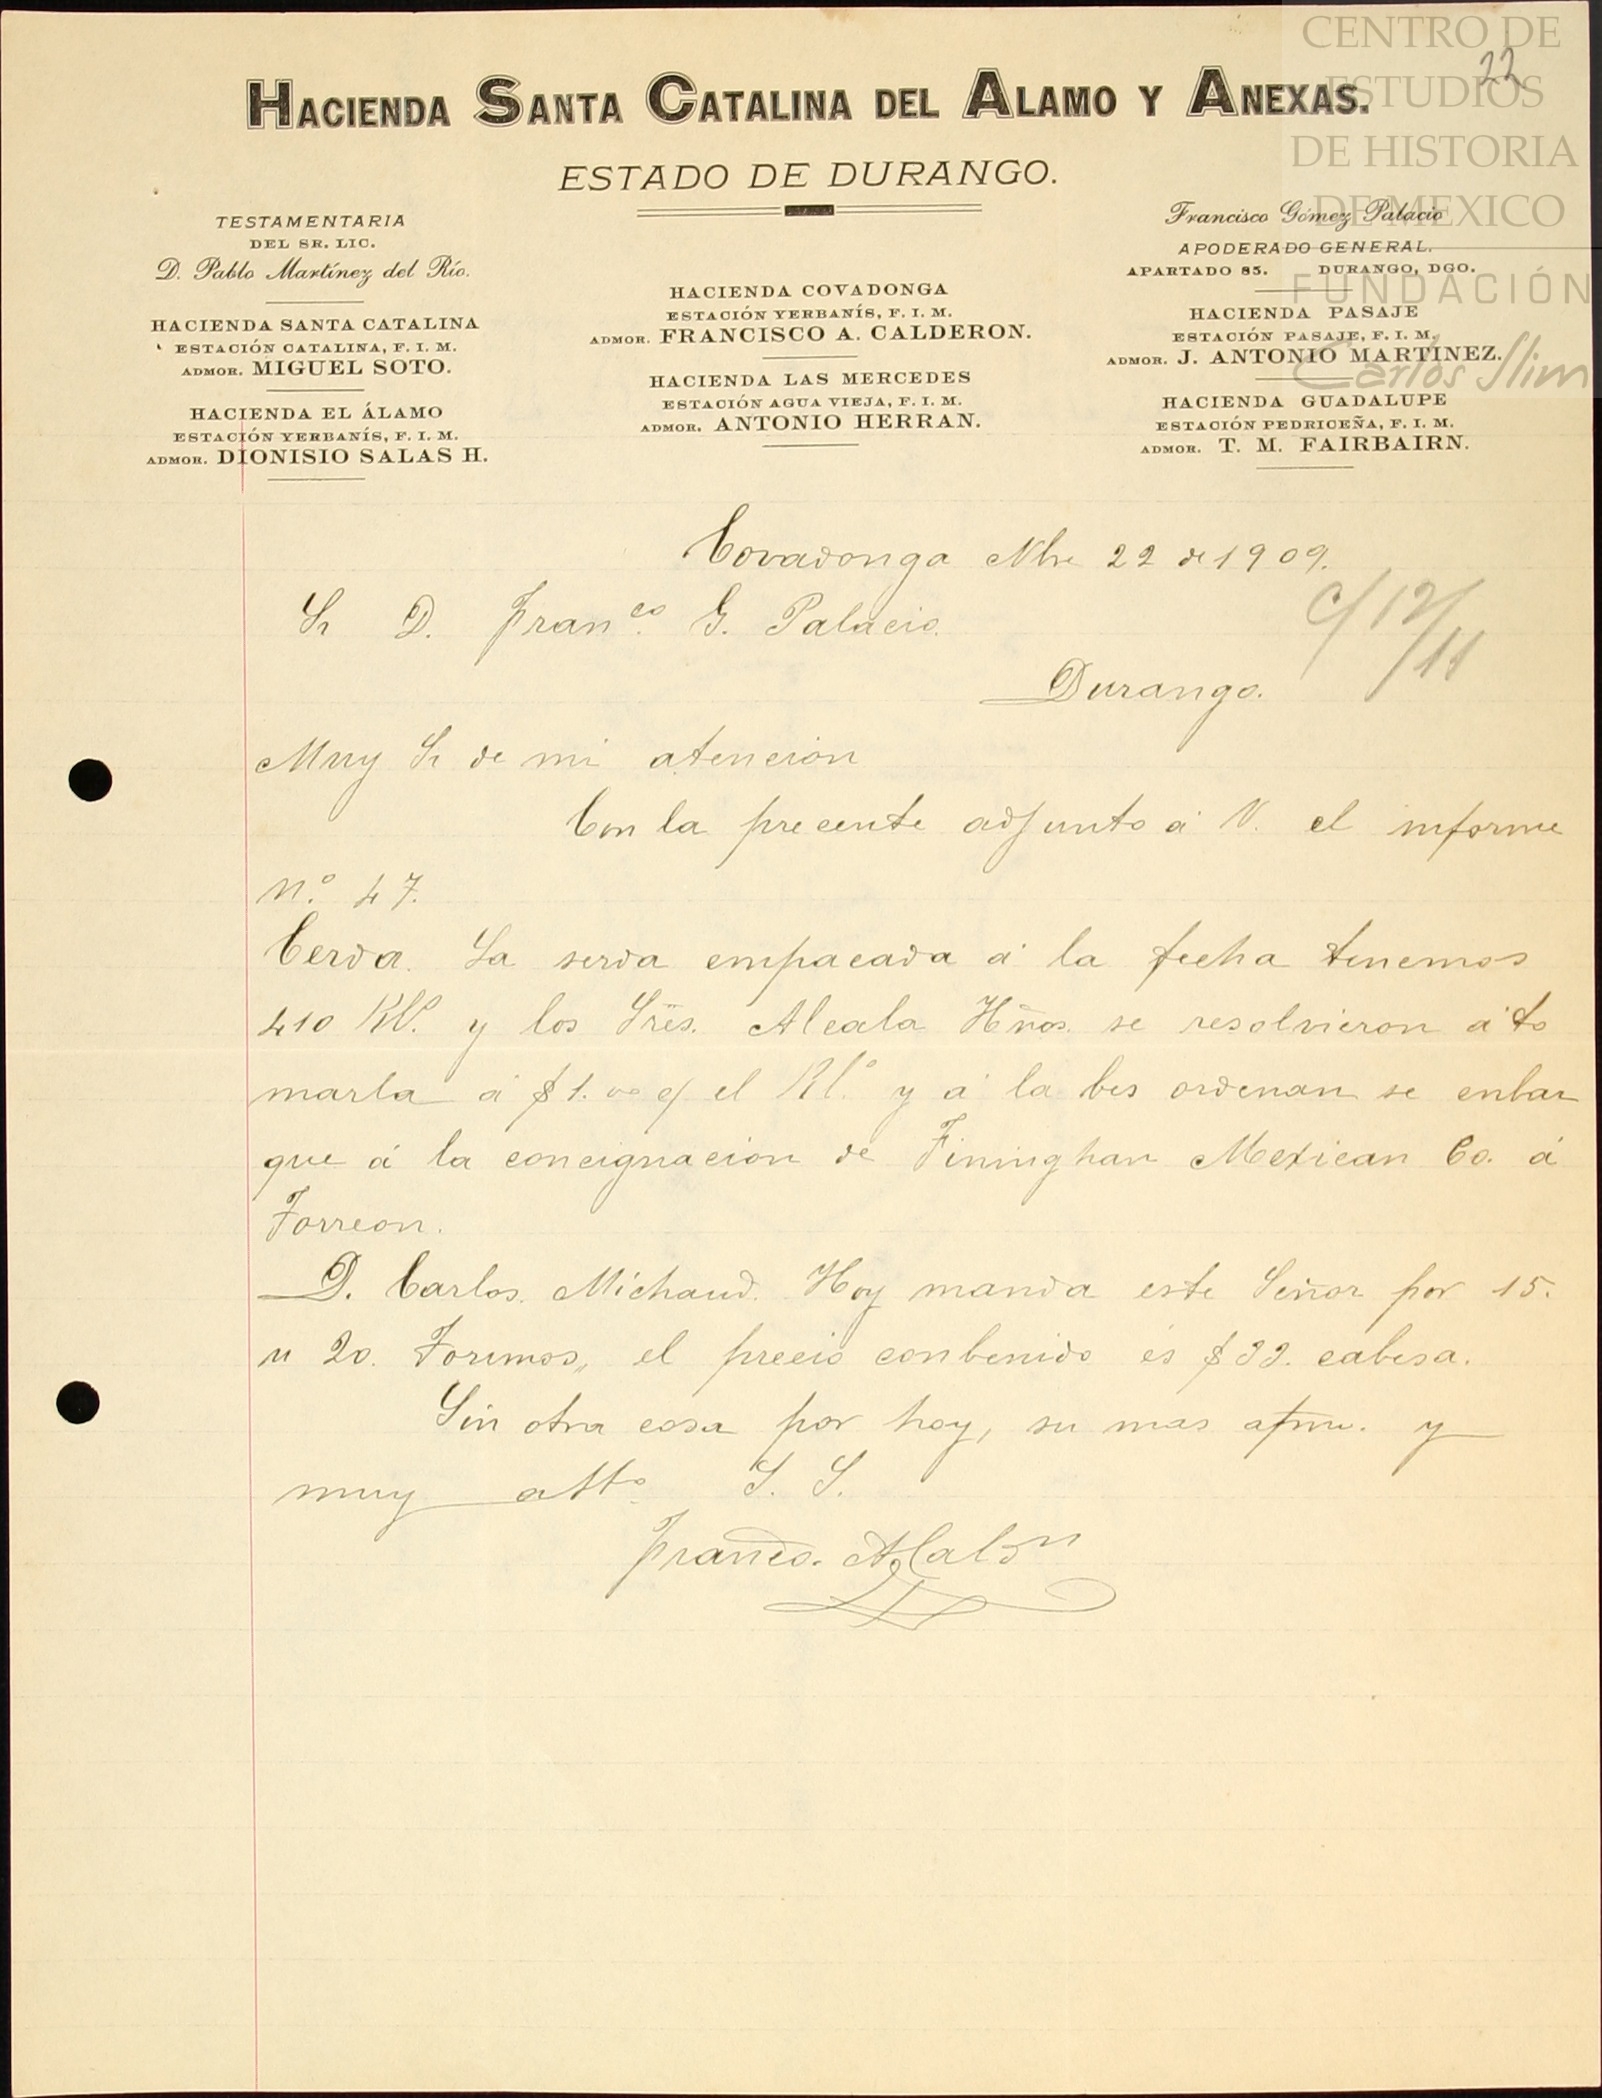 CENTRO DE
ESTUDIOS
DE HISTORIA
DE MEXICO
FUNDACIÓN
Carlos Slim
22
HACIENDA SANTA CATALINA DEL ALAMO Y ANEXAS.
ESTADO DE DURANGO.
TESTAMENTARIA
DEL SR. LIC.
D. Pablo Martínez del Río.
HACIENDA SANTA CATALINA
ESTACIÓN CATALINA, F. I. M.
ADMOR. MIGUEL SOTO.
HACIENDA EL ÁLAMO
ESTACIÓN YERBANÍS, F. I. M.
ADMOR. DIONISIO SALAS H.
HACIENDA COVADONGA
ESTACIÓN YERBANÍS, F. I. M.
ADMOR. FRANCISCO A. CALDERON.
HACIENDA LAS MERCEDES
ESTACIÓN AGUA VIEJA, F. I. M.
ADMOR. ANTONIO HERRAN.
Francisco Gómez Palacio
APODERADO GENERAL.
APARTADO 85. DURANGO, DGO.
HACIENDA PASAJE
ESTACIÓN PASAJE, F. I. M.
ADMOR. J. ANTONIO MARTÍNEZ.
HACIENDA GUADALUPE
ESTACIÓN PEDRICEÑA, F. I. M.
ADMOR. T. M. FAIRBAIRN.
Covadonga Nbre 22 de 1909.
Sr D. Franco. G. Palacio.
Durango.
Muy Sr de mi atencion
Con la precente adjunto á V. el informe
No. 47.
Cerda. La serda empacada á la fecha tenemos
410 Klo. y los Sres. Alcala Hños. se resolvieron á to
marla á $1.00 c/ el Klo. y á la bes ordenan se enbar
que á la concignacion de Finninghan Mexican Co. á
Torreon.
D. Carlos Michaud. Hoy manda este Señor por 15.
u 20. Torunos, el precio conbenido es $33. cabesa.
Sin otra cosa por hoy, su mas afmo. y
muy atto. S. S.
Franco. A. Calon